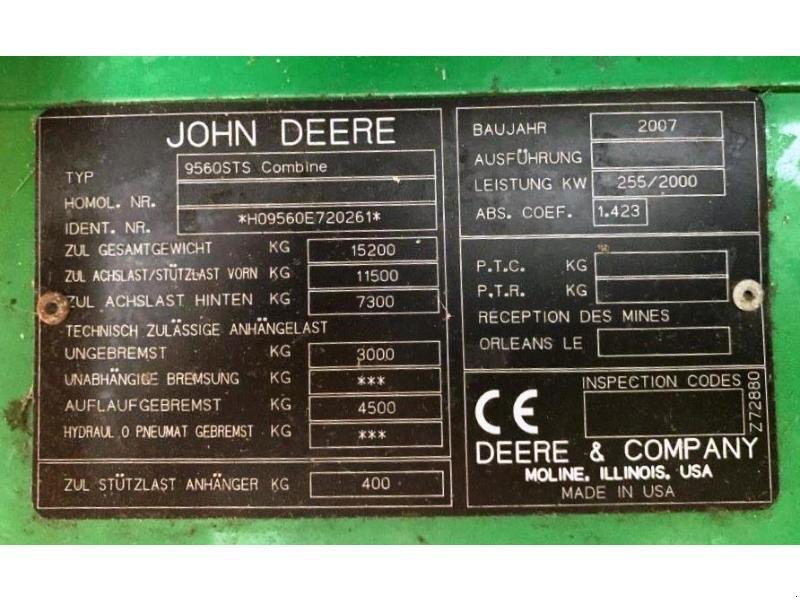 JOHN DEERE
TYP 9560STS Combine
HOMOL. NR.
IDENT. NR. *H09560E720261*
ZUL GESAMTGEWICHT KG 15200
ZUL ACHSLAST/STÜTZLAST VORN KG 11500
ZUL ACHSLAST HINTEN KG 7300
TECHNISCH ZULÄSSIGE ANHÄNGELAST
UNGEBREMST KG 3000
UNABHÄNGIGE BREMSUNG KG ***
AUFLAUFGEBREMST KG 4500
HYDRAUL O PNEUMAT GEBREMST KG ***
ZUL STÜTZLAST ANHÄNGER KG 400
BAUJAHR 2007
AUSFÜHRUNG
LEISTUNG KW 255/2000
ABS. COEF. 1.423
P.T.C. KG
P.T.R. KG
RECEPTION DES MINES
ORLEANS LE
INSPECTION CODES
CE
Z72880
DEERE & COMPANY
MOLINE, ILLINOIS, USA
MADE IN USA